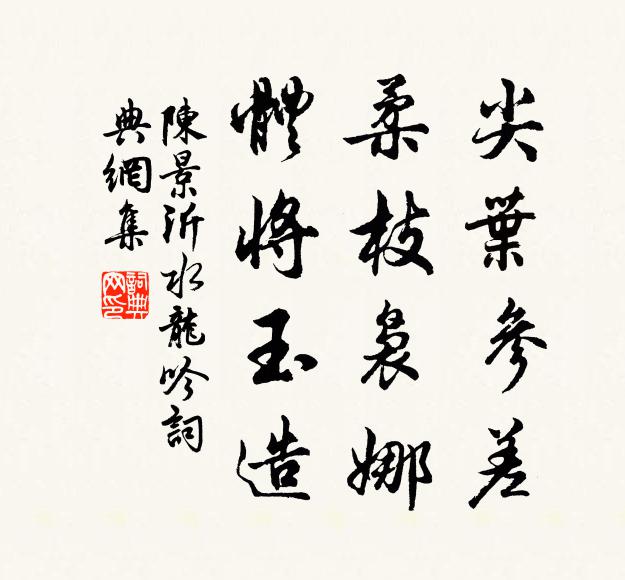 尖葉參差
柔枝裊娜
體將玉造
陳景沂水龍吟詞
典網集
詞典網印